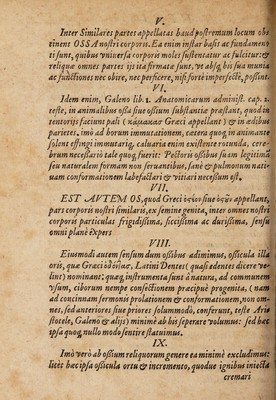 V.
Inter Similares partes appellatas haud postremum locum ob-
tinent OSSA nostri corporis. Ea enim instar basis ac fundamen-
ti sunt, quibus vniversa corporis moles sustentatur ac fulcitur: &
reliquæ omnes partes iis ita firmatæ sunt, vt absq; his sua munia
ac functiones nec obire, nec perficere, nisi fortè imperfectè, possint.
VI.
Idem enim, Galeno lib. 1. Anatomicarum administ. cap. 2.
teste, in animalibus ossa sive ossium substantia præstant, quod in
tentoriis faciunt pali ( Græci appellant) & in ædibus
parietes. imò ad horum immutationem, cætera quoq; in animante
solent effingi immutariq;. calvaria enim existente rotunda, cere-
brum necessariò tale quoq; fuerit: Pectoris ossibus suam legitimã
seu naturalem formam non servantibus, sanè & pulmonum nati-
uam conformationem labefactari & vitiari necessum est.
VII.
EST AVTEM OS, quod Græci sive appellant,
pars corporis nostri similaris, ex semine genita, inter omnes nostri
corporis particulas frigidissima, siccissima ac durissima, sensu
omni planè expers.
VIII.
Eiusmodi autem sensum dum ossibus adimimus, ossicula illa
oris, quæ Græci Latini Dentes (quasi edentes dicere ve-
lint) nominant: quæq; instrumenta sunt à natura, ad communem
vsum, ciborum nempe confectionem præcipuè progenita, (nam
ad concinnam sermonis prolationem & conformationem, non om-
nes, sed anteriores sive priores solummodò, conferunt, teste Ari-
stotele, Galeno & aliis) minimè ab his seperare volumus: sed hæc
ipsa quoq; nullo modo sentire statuimus.
IX.
Imò verò ab ossium reliquorum genere ea minimè excludimus:
licèt hæc ipsa ossicula ortu & incremento, quodue ignibus iniecta
cremari